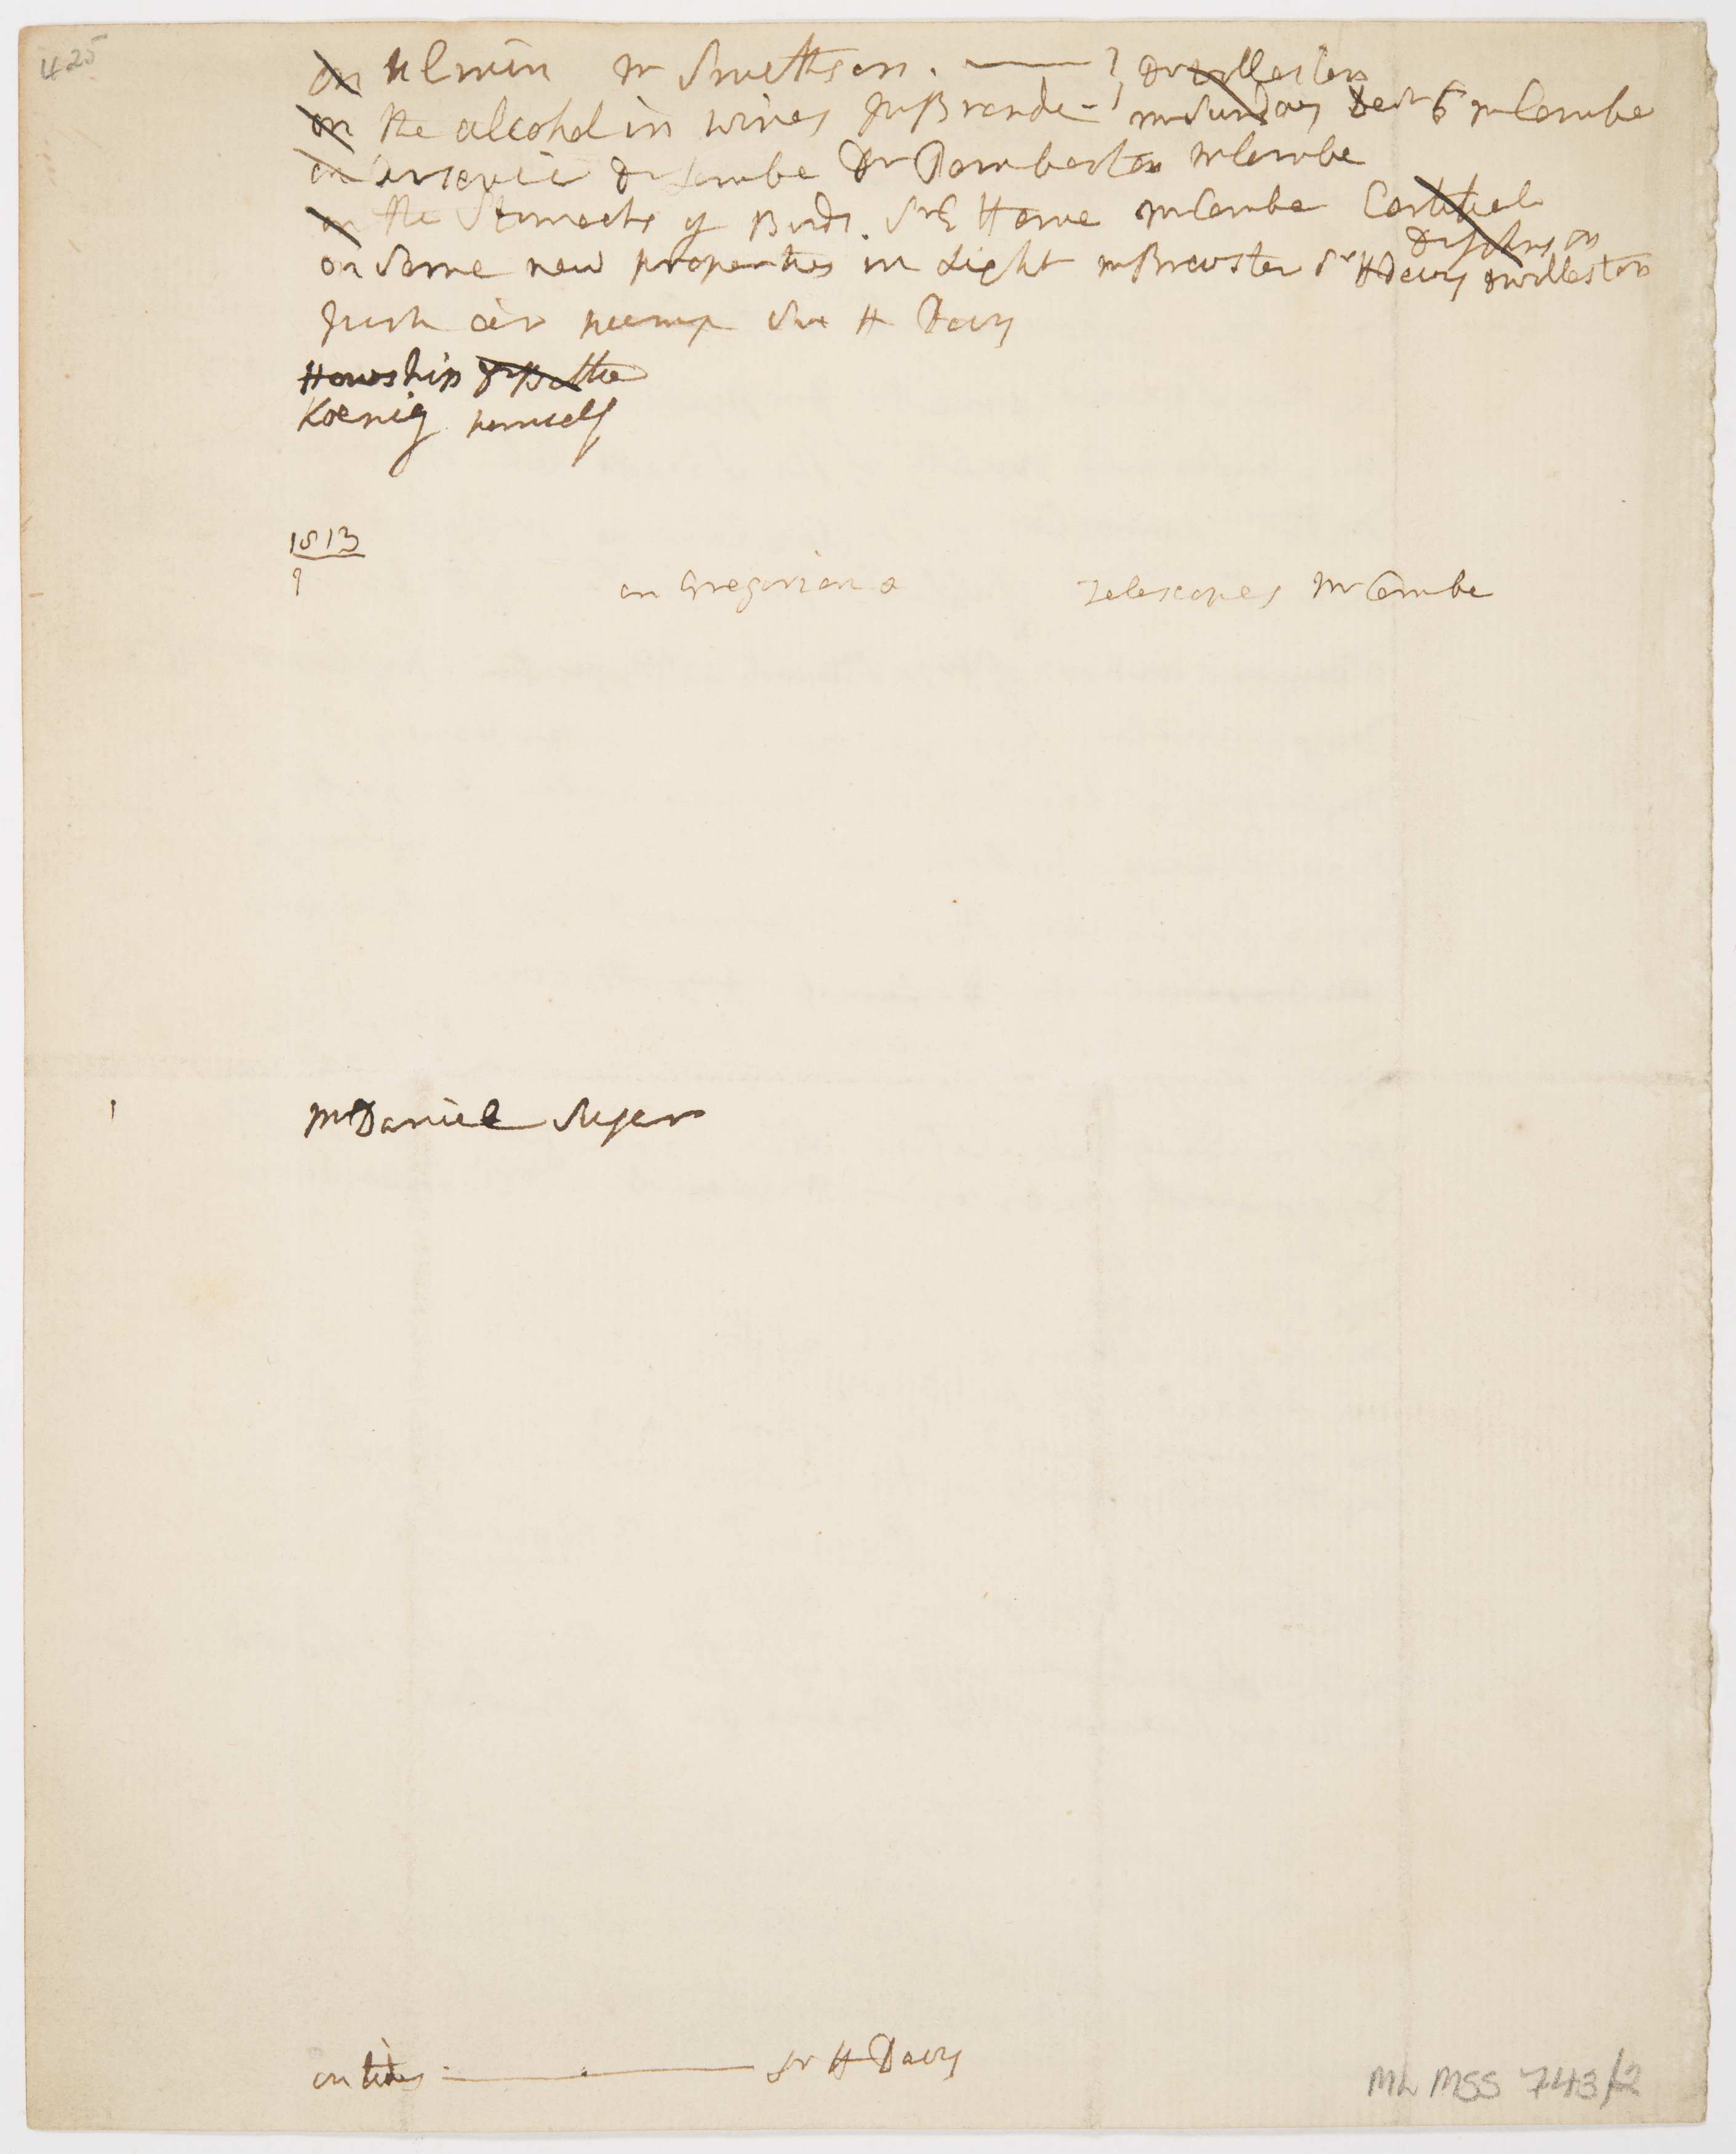 425
on Ulmin Mr Smithson. — } Dr Wollaston
on the alcohol in wines Mr Brande - } Mr Sunday Decr 6 Mr Combe
on Arsenic Dr Lambe Dr Pemberton Mr Combe
on the Stomachs of Birds. Sr E Home Mr Combe
on Some new properties in Light Mr Brewster Sr H Davy Dr Wollaston
air pump Sir H Davy
Howship
Koenig himself
1813
9
on Gregorian & Telescopes Mr Combe
Mr Daniel
on tides — Sr H Davy
ML MSS 743/2